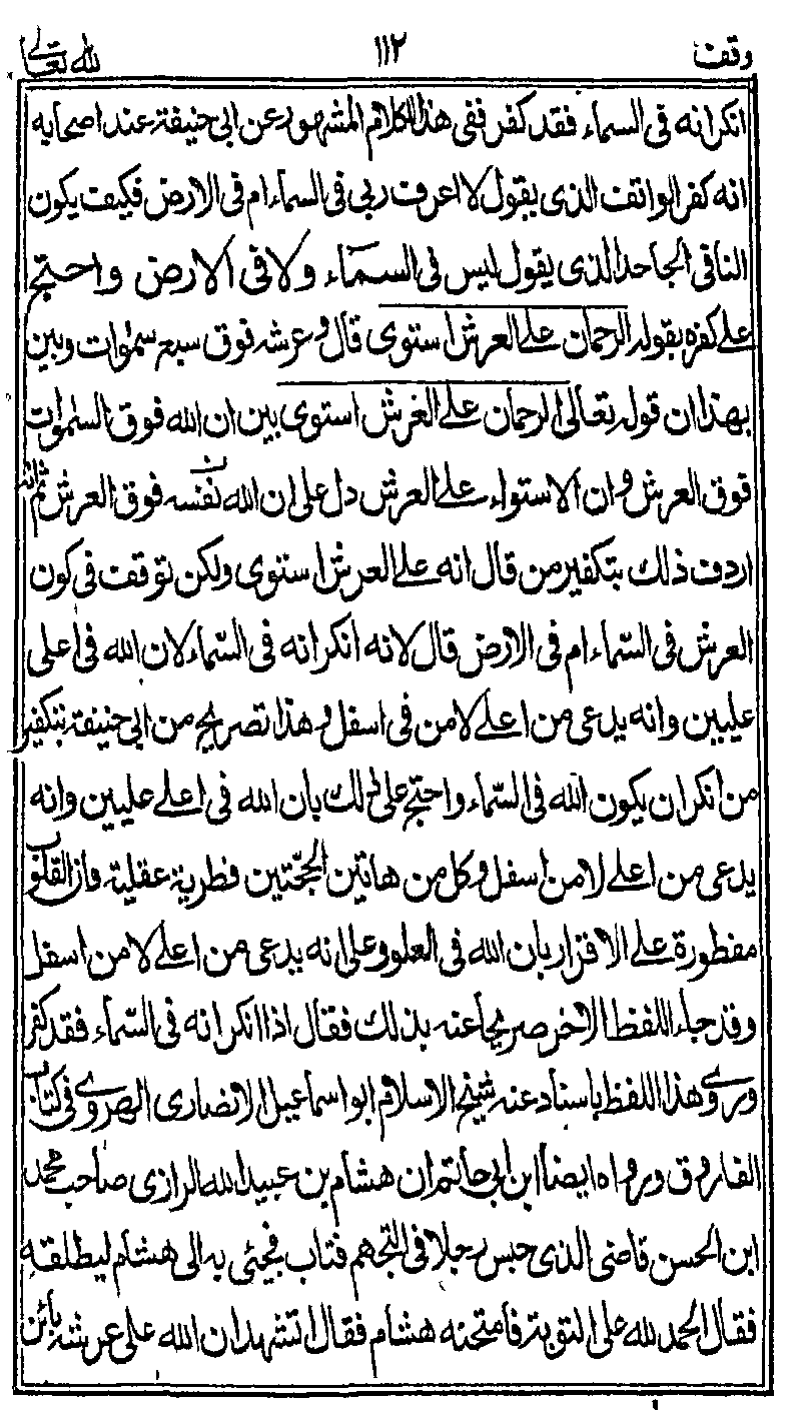 وقف ١١٢ لله تعالى
انكر انه فى السماء فقد كفر ففى هذا الكلام المشهور عن ابى حنيفة عند اصحابه
انه كفر الواقف الذى يقول لا اعرف ربى فى السماء ام فى الارض فكيف يكون
النافى الجاحد الذى يقول ليس فى السماء ولا فى الارض واحتج
على كفره بقوله الرحمان على العرش استوى قال وعرشه فوق سبع سموات وبين
بهذا ان قوله تعالى الرحمان على العرش استوى بين ان الله فوق السموات
فوق العرش وان الاستواء على العرش دل على ان الله نفسه فوق العرش ثم انه
اردف ذلك بتكفير من قال انه على العرش استوى ولكن توقف فى كون
العرش فى السماء ام فى الارض قال لانه انكر انه فى السماء لان الله فى اعلى
عليين وانه يدعى من اعلى لا من فى اسفل وهذا تصريح من ابى حنيفة بتكفير
من انكر ان يكون الله فى السماء واحتج على ذلك بان الله فى اعلى عليين وانه
يدعى من اعلى لا من اسفل وكل من هاتين الحجتين فطرية عقلية فان القلوب
مفطورة على الاقرار بان الله فى العلو وعلى انه يدعى من اعلى لا من اسفل
وقد جاء اللفظ الاخر صريحا عنه بذلك فقال اذا انكر انه فى السماء فقد كفر
وروى هذا اللفظ باسناد عنه شيخ الاسلام ابو اسماعيل الانصارى الهروى فى كتاب
الفاروق ورواه ايضا ابن ابى حاتم ان هشام بن عبيد الله الرازى صاحب محمد
ابن الحسن قاضى الذى حبس رجلا فى التجهم فتاب فجئى به الى هشام ليطلقه
فقال الحمد لله على التوبة فامتحنه هشام فقال اتشهد ان الله على عرشه بائن